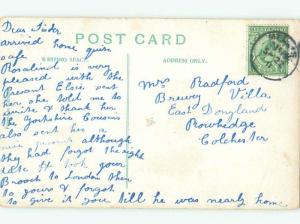 Dear Sister
arrived home quite
safe
POST CARD
WRITING SPACE
ADDRESS ONLY.
Rosalind is very
pleased with the
Present Elsie sent
her, she told me to
write & thank her
the Yorkshire Cousins
also sent her a
nice present although
they had forgot the
took your
Brooch to London then
to yours & forgot
to give it you till he was nearly home.
Mrs Radford
Brewery Villa
East Donyland
Rowhedge
Colchester